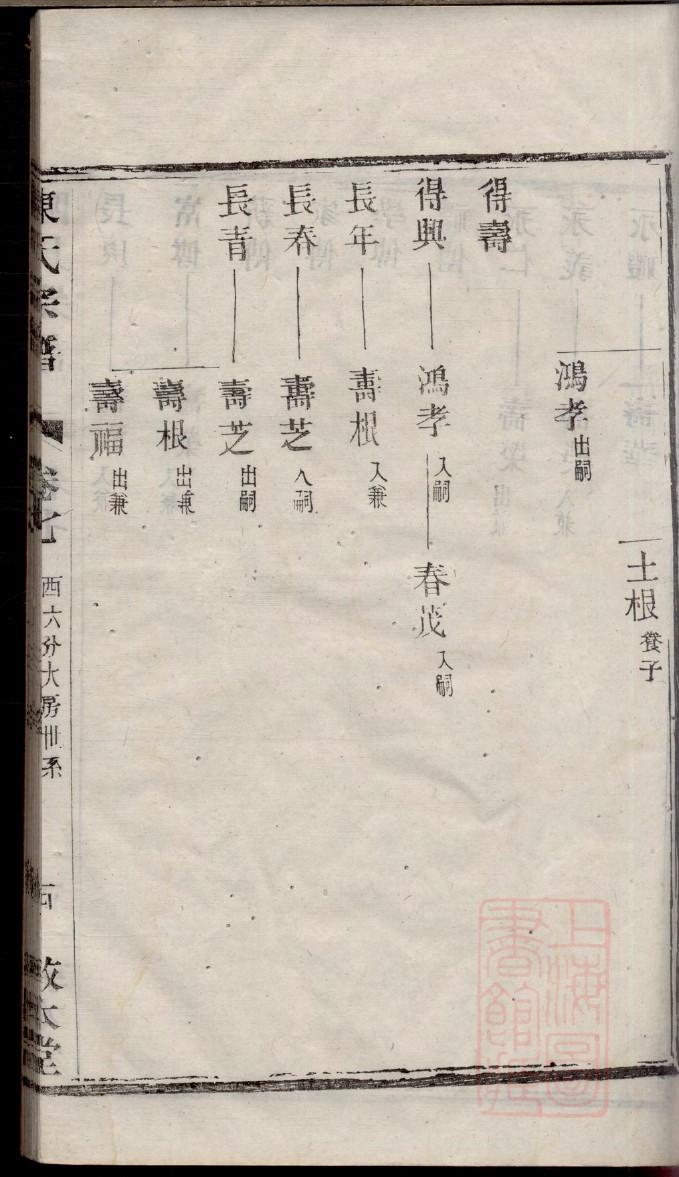 土根 養子
鴻孝 出嗣
得壽
得興 鴻孝 入嗣 春茂 入嗣
長年 壽根 入兼
長春 壽芝 入嗣
長青 壽芝 出嗣
壽根 出兼
壽福 出兼
陳氏宗譜 卷七 西六分大房世系 敬本堂
上海圖書館藏